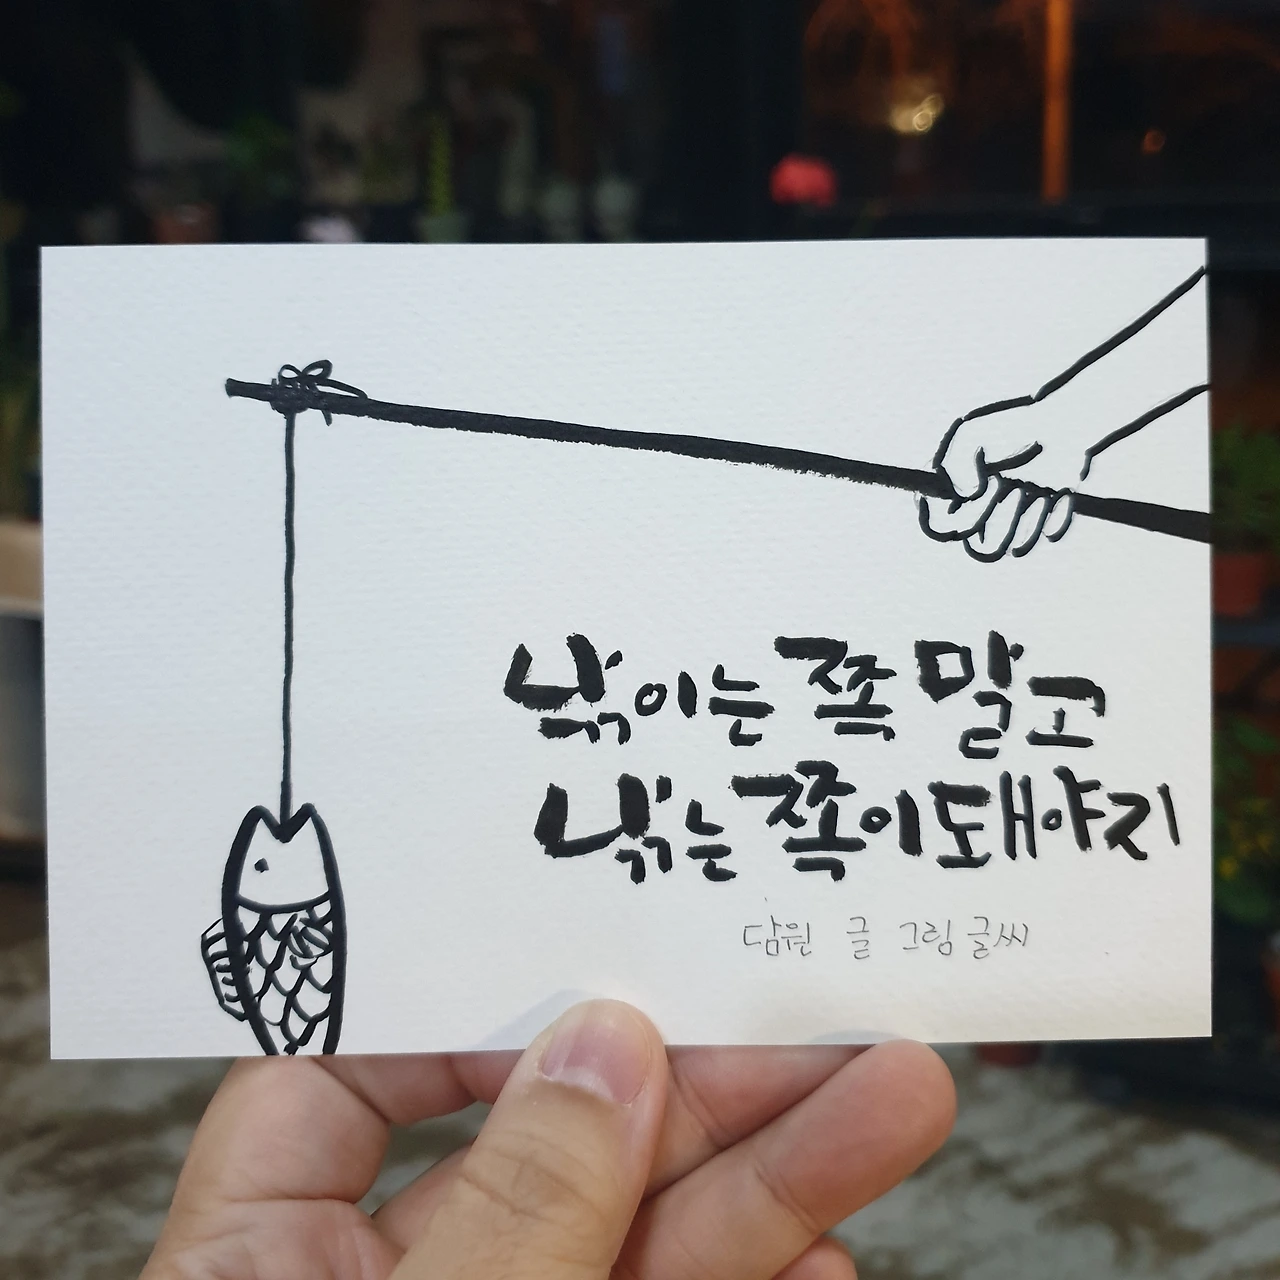 낚이는 쪽 말고
낚는 쪽이 돼야지
담원 글 그림 글씨